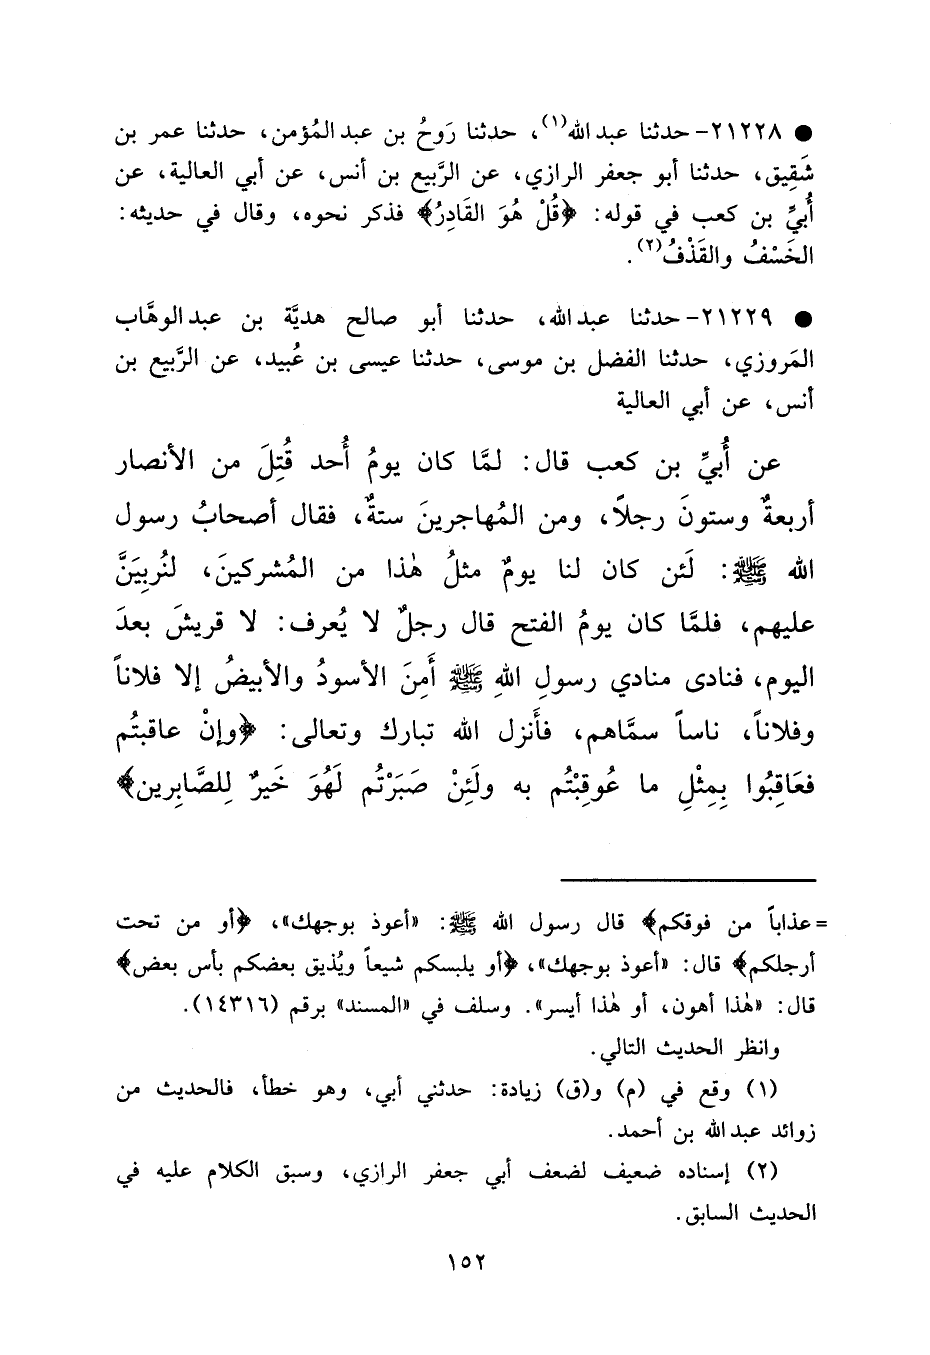 ● ٢١٢٢٨- حدثنا عبد الله(١)، حدثنا رَوحُ بن عبد المُؤمن، حدثنا عمر بن
شَقِيق، حدثنا أبو جعفر الرازي، عن الرَّبيع بن أنس، عن أبي العالية، عن
أُبيِّ بن كعب في قوله: ﴿قُلْ هُوَ القَادِرُ﴾ فذكر نحوه، وقال في حديثه:
الخَسْفُ والقَذْفُ(٢).
● ٢١٢٢٩- حدثنا عبد الله، حدثنا أبو صالح هديَّة بن عبد الوهَّاب
المَروزي، حدثنا الفضل بن موسى، حدثنا عيسى بن عُبيد، عن الرَّبيع بن
أنس، عن أبي العالية
عن أُبيِّ بن كعب قال: لمَّا كان يومُ أُحد قُتِلَ من الأنصار
أربعةٌ وستونَ رجلاً، ومن المُهاجرينَ ستةٌ، فقال أصحابُ رسول
الله ﷺ: لَئن كان لنا يومٌ مثلُ هٰذا من المُشركينَ، لنُربِيَنَّ
عليهم، فلمَّا كان يومُ الفتح قال رجلٌ لا يُعرف: لا قريشَ بعدَ
اليوم، فنادى منادي رسولِ اللهِ ﷺ أَمِنَ الأسودُ والأبيضُ إلا فلاناً
وفلاناً، ناساً سمَّاهم، فأَنزل الله تبارك وتعالى: ﴿وإنْ عاقبتُم
فعَاقِبُوا بِمِثْلِ ما عُوقِبْتُم به ولَئِنْ صَبَرْتُم لَهُوَ خَيرٌ لِلصَّابِرين﴾
= عذاباً من فوقكم﴾ قال رسول الله ﷺ: «أعوذ بوجهك»، ﴿أو من تحت
أرجلكم﴾ قال: «أعوذ بوجهك»، ﴿أو يلبسكم شيعاً ويُذيق بعضكم بأس بعض﴾
قال: «هٰذا أهون، أو هٰذا أيسر». وسلف في «المسند» برقم (١٤٣١٦).
وانظر الحديث التالي.
(١) وقع في (م) و(ق) زيادة: حدثني أبي، وهو خطأ، فالحديث من
زوائد عبد الله بن أحمد.
(٢) إسناده ضعيف لضعف أبي جعفر الرازي، وسبق الكلام عليه في
الحديث السابق.
١٥٢